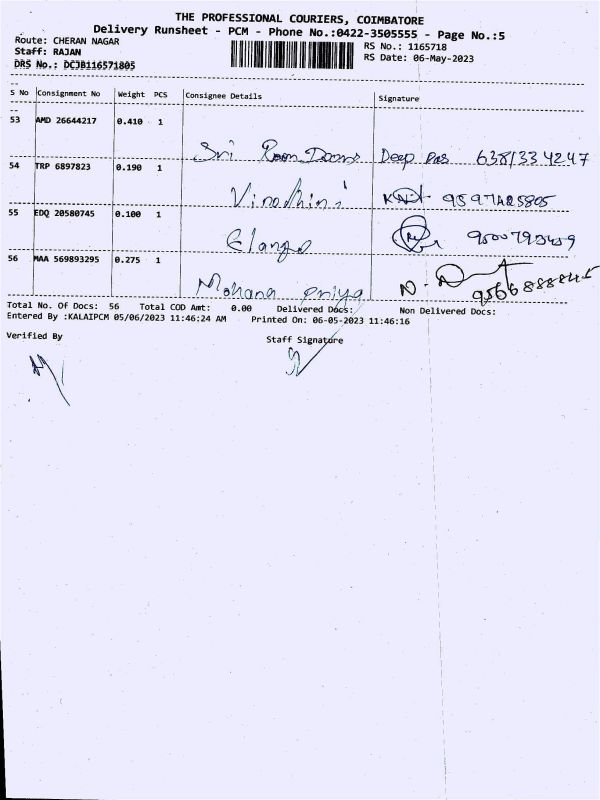 THE PROFESSIONAL COURIERS, COIMBATORE
Delivery Runsheet - PCM - Phone No.:0422-3505555 - Page No.:5
Route: CHERAN NAGAR
RS No.: 1165718
Staff: RAJAN
RS Date: 06-May-2023
DRS No.: DCJB116571805
S No Consignment No Weight PCS Consignee Details Signature
53 AMD 26644217 0.410 1
Sri Ram Doors Deep Das 6381334247
54 TRP 6897823 0.190 1
Vinodhini 9597425805
55 EDQ 20580745 0.100 1
Elango
56 MAA 569893295 0.275 1
Mohana Priya
Total No. Of Docs: 56 Total COD Amt: 0.00 Delivered Docs: Non Delivered Docs:
Entered By :KALAIPCM 05/06/2023 11:46:24 AM Printed On: 06-05-2023 11:46:16
Verified By Staff Signature